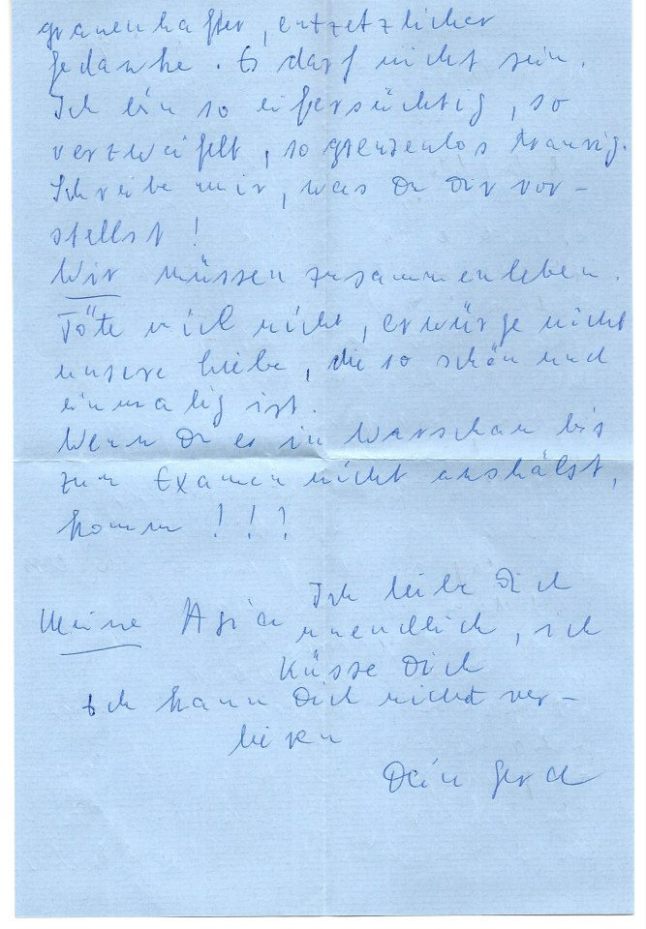 grauenhafter, entzetzlicher
Gedanke. Es darf nicht sein.
Ich bin so eifersüchtig, so
verzweifelt, so grenzenlos traurig.
Schreibe mir, was Du Dir vor-
stellst!
Wir müssen zusammenleben.
Töte mich nicht, erwürge nicht
unsere Liebe, die so schön und
einmalig ist.
Wenn Du es in Warschau bis
zum Examen nicht aushälst,
komm!!!
Ich liebe Dich
Meine Asia unendlich, ich
küsse Dich
Ich kann Dich nicht ver-
lieren
Dein Gerd